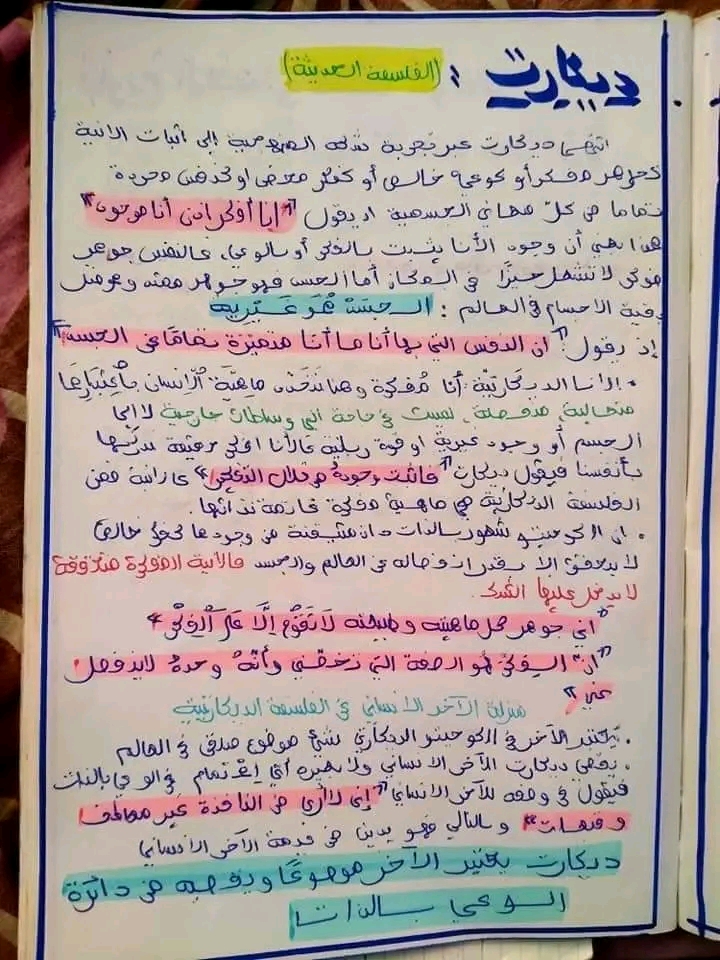 ديكارت : (الفلسفة الحديثة)
انتهى ديكارت عبر تجربة شكه المنهجية إلى اثبات الانية
كجوهر مفكر أو كوعي خالص أو كفكر محض او كذهن مجردة
تماما من كلّ معاني الجسمية اذ يقول "أنا أفكر اذن أنا موجود"
هذا يعني أن وجود الأنا يثبت بالفكر أو بالوعي، فالنفس جوهر
مفكر لا تشغل حيزا في المكان أما الجسد فهو جوهر ممتد
بقية الاجسام في العالم : الجسَدْ هُوَ غَيْرِيه
إذ يقول: "ان النفس التي بها أنا ما أنا متميّزة تمامًا عن الجسد"
. الأنا الديكارتيّة: أنا مُفكرة وهنا تتحدد ماهيّة الإنسان بِاعْتِبَارِهَا
متعالية، منفصلة، ليست في حاجة الى وساطات خارجية لا الى
الجسم أو وجود غيرية او قوة فالأنا افكر حقيقة ندركها
بأنفسنا فيقول ديكارت "فاثبت وجودهُ من خلال التفكير" فالانية ضمن
الفلسفة الديكارتية هي ماهية مفكرة قائمة بذاتها.
. ان الكوجيتو شعور بالذات ذات متيقنة من وجودها كفكر خالص
لا يتحقق الا بقدر انفصاله عن العالم والجسد فالأنية المفكرة
لا يدخل عليها الشك.
"اني جوهر كل ماهيته وطبيعته لاَ تَقُوْم إلَّا عَلَى الْفِكْرِ"
"انّ الفكر هُو الصفة التي تخصّني وأنّهُ وحدهُ لا ينفصل
عني"
منزلة الآخر الانساني في الفلسفة الديكارتية
. يعتبر الآخر في الكوجيتو الديكارتي شيء موضوع ملقى في العالم
. يقصي ديكارت الآخر الانساني ولا يعيره أيّ اهْتمام في الوعي بالذات
فيقول في وصفه للآخر الانساني "إني لا أرى من النافذة غير معاطف
وقبعات" وبالتالي فهو من قيمة الآخر الانساني
ديكارت يعتبر الآخر موضوعًا ويقصيه من دائرة
الوعي بالذات